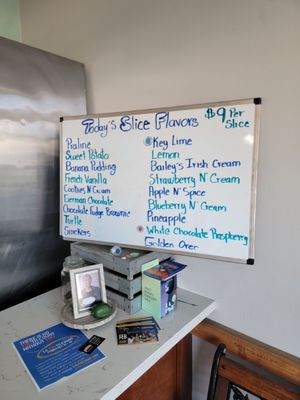 Today's Slice Flavors
$9 Per
Slice
Praline
Sweet Potato
Banana Pudding
French Vanilla
Cookies N Cream
German Chocolate
Chocolate Fudge Brownie
Turtle
Snickers
Key Lime
Lemon
Bailey's Irish Cream
Strawberry N' Cream
Apple N' Spice
Blueberry N' Cream
Pineapple
White Chocolate Raspberry
Golden Oreo
THERE IS NO